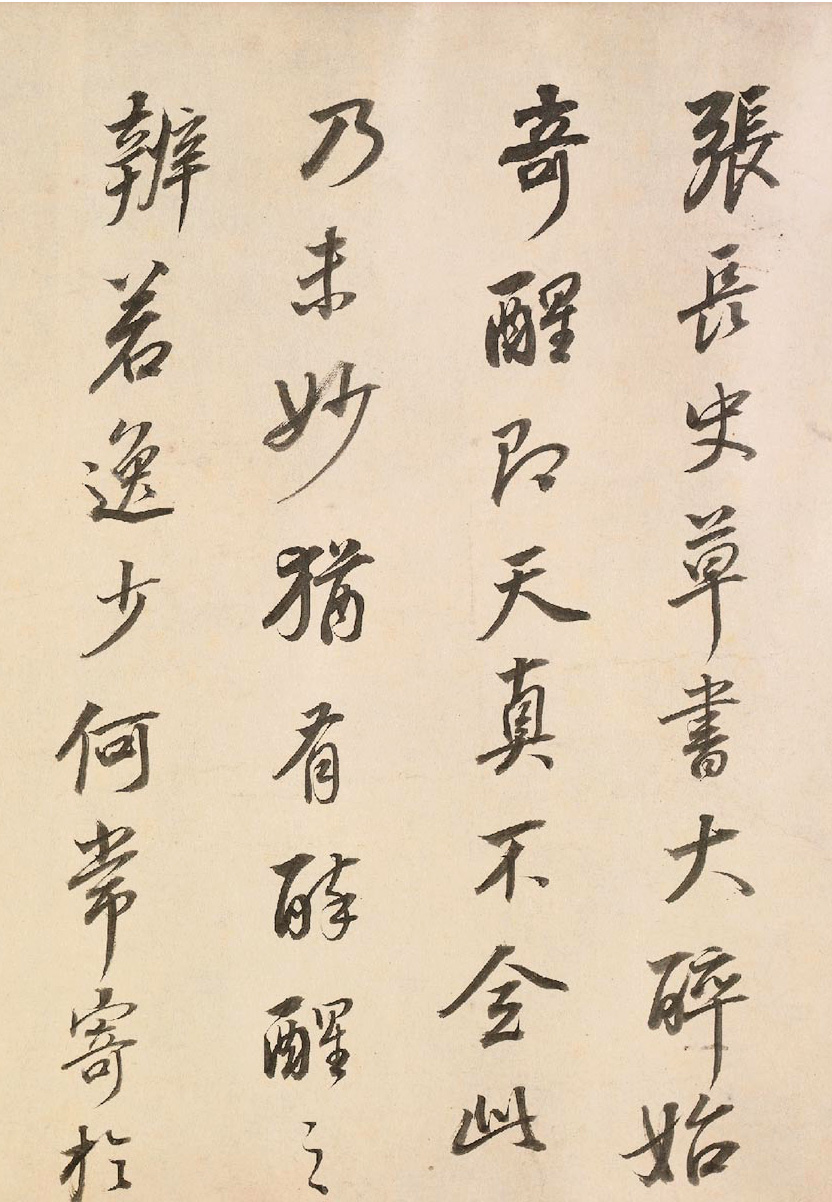 張長史草書大醉始
奇醒即天真不全此
乃未妙猶有醉醒之
辨若逸少何常寄於